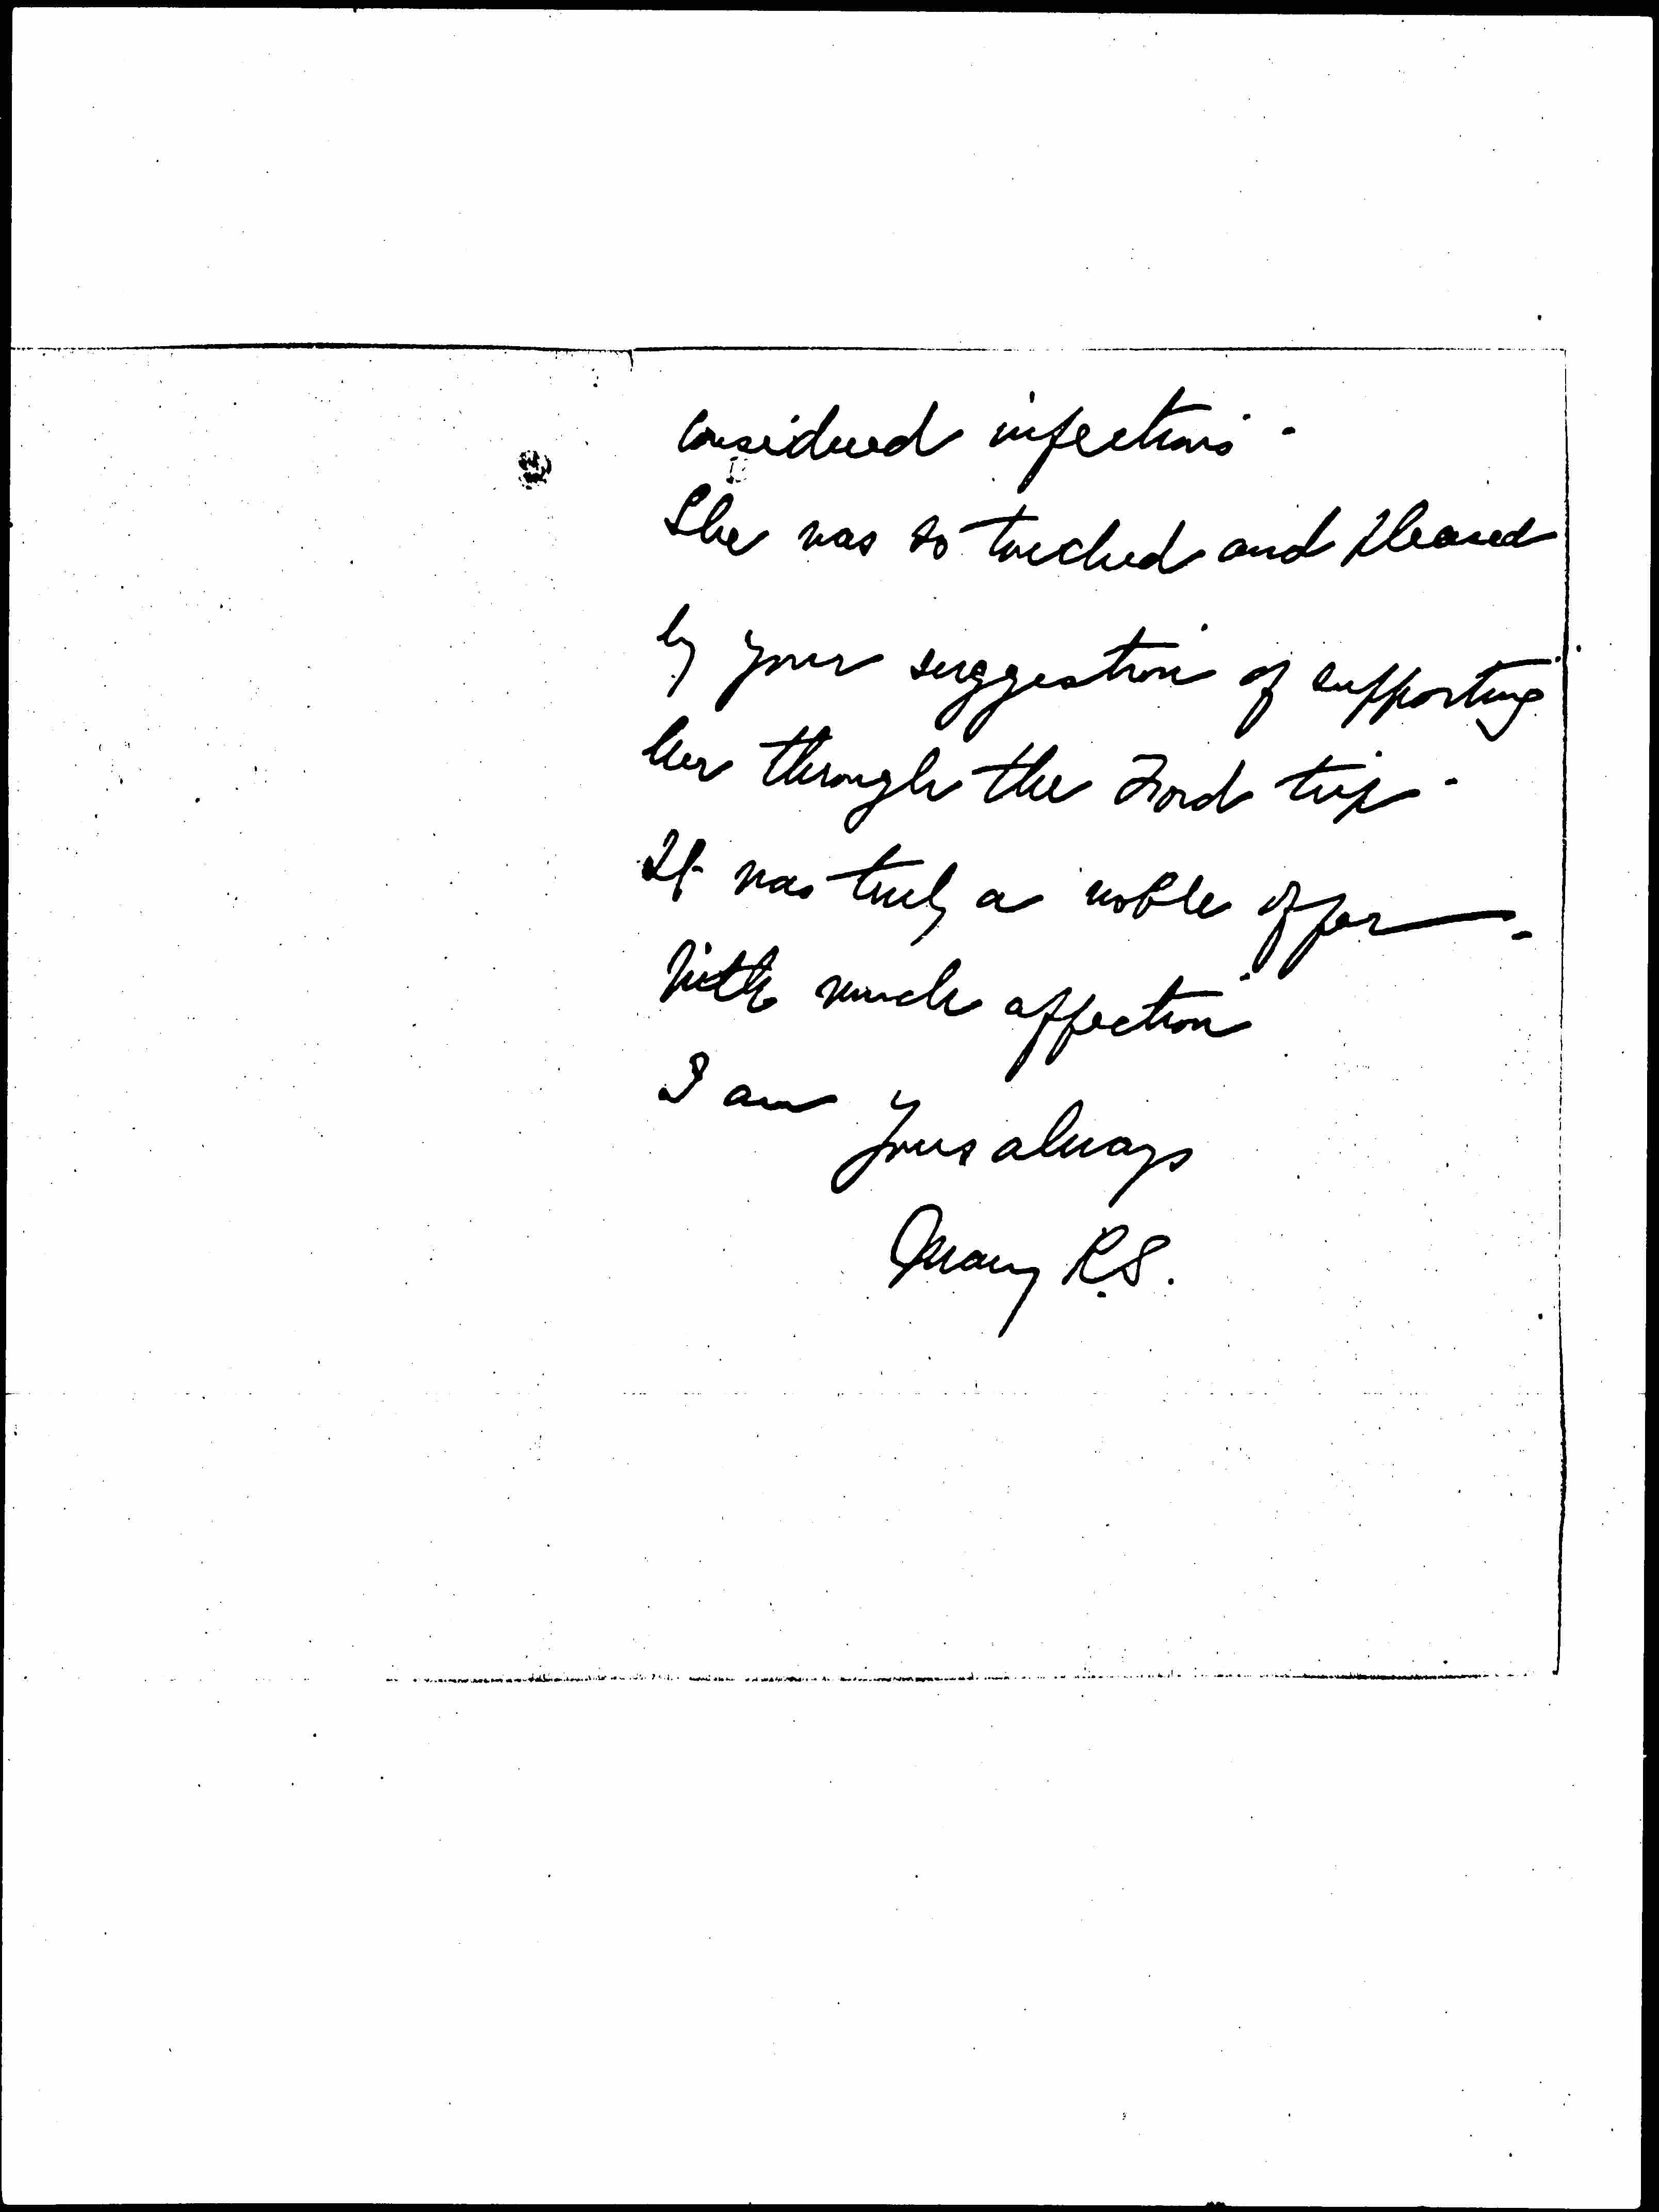 considered infectious.
She was so touched and pleased
by your suggestion of supporting
her through the Ford trip.
It was truly a noble offer.
With much affection
I am
Yours always
Mary R.S.